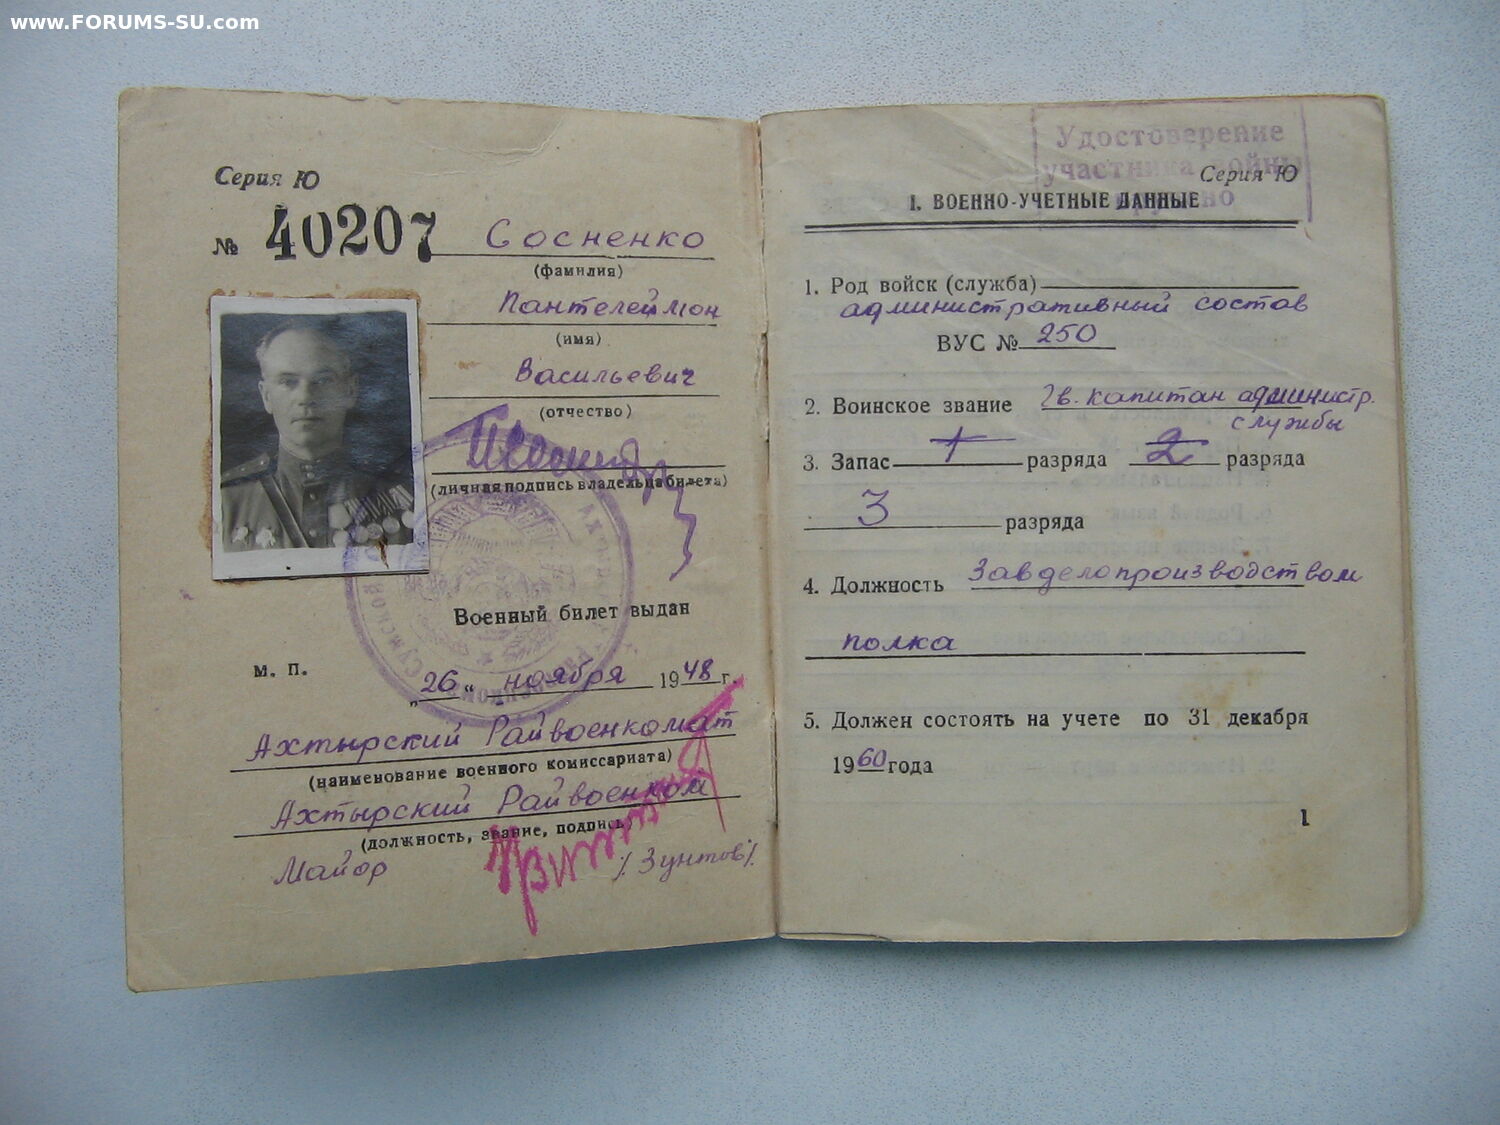 www.FORUMS-SU.com
Серия Ю
№ 40207 Сосненко
(фамилия)
Пантелеймон
(имя)
Васильевич
(отчество)
(личная подпись владельца билета)
Военный билет выдан
м. п.
„26“ ноября 1948 г.
Ахтырский Райвоенкомат
(наименование военного комиссариата)
Ахтырский Райвоенком
(должность, звание, подпись)
Майор /Зунтов/.
Удостоверение
участника войны
Серия Ю
I. ВОЕННО-УЧЕТНЫЕ ДАННЫЕ
1. Род войск (служба)
административный состав
ВУС № 250
2. Воинское звание Гв. капитан администр.
службы
3. Запас 1 разряда 2 разряда
3 разряда
4. Должность Завделопроизводством
полка
5. Должен состоять на учете по 31 декабря
1960 года
1